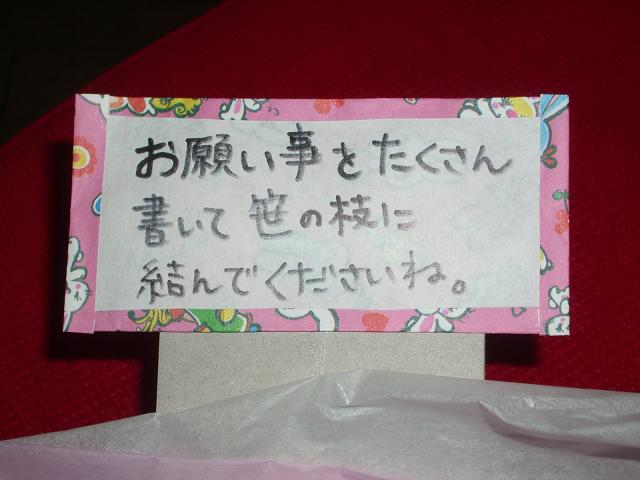 お願い事をたくさん
書いて笹の枝に
結んでくださいね。